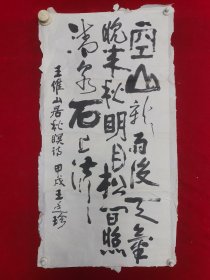 空山新雨後天氣
晚来秋明月松間照
清泉石上流
王維山居秋暝詩 甲戌王